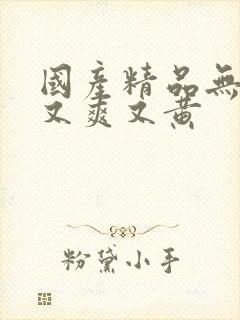 國産精品無
又爽又黃
粉黛小手